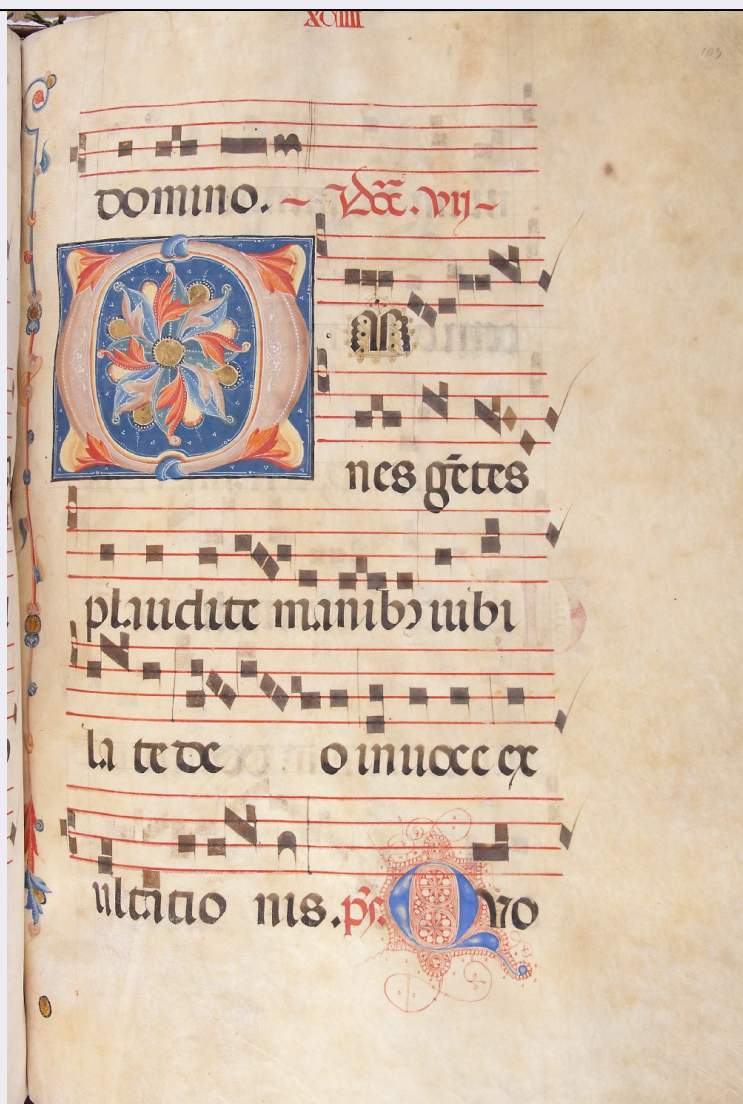 XCIIII
103
domino. ~ Dōc. vij ~
OM
nes gētes
plaudite manibꝫ iubi
la te de o in uoce ex
ultatio nis. ps. Quo